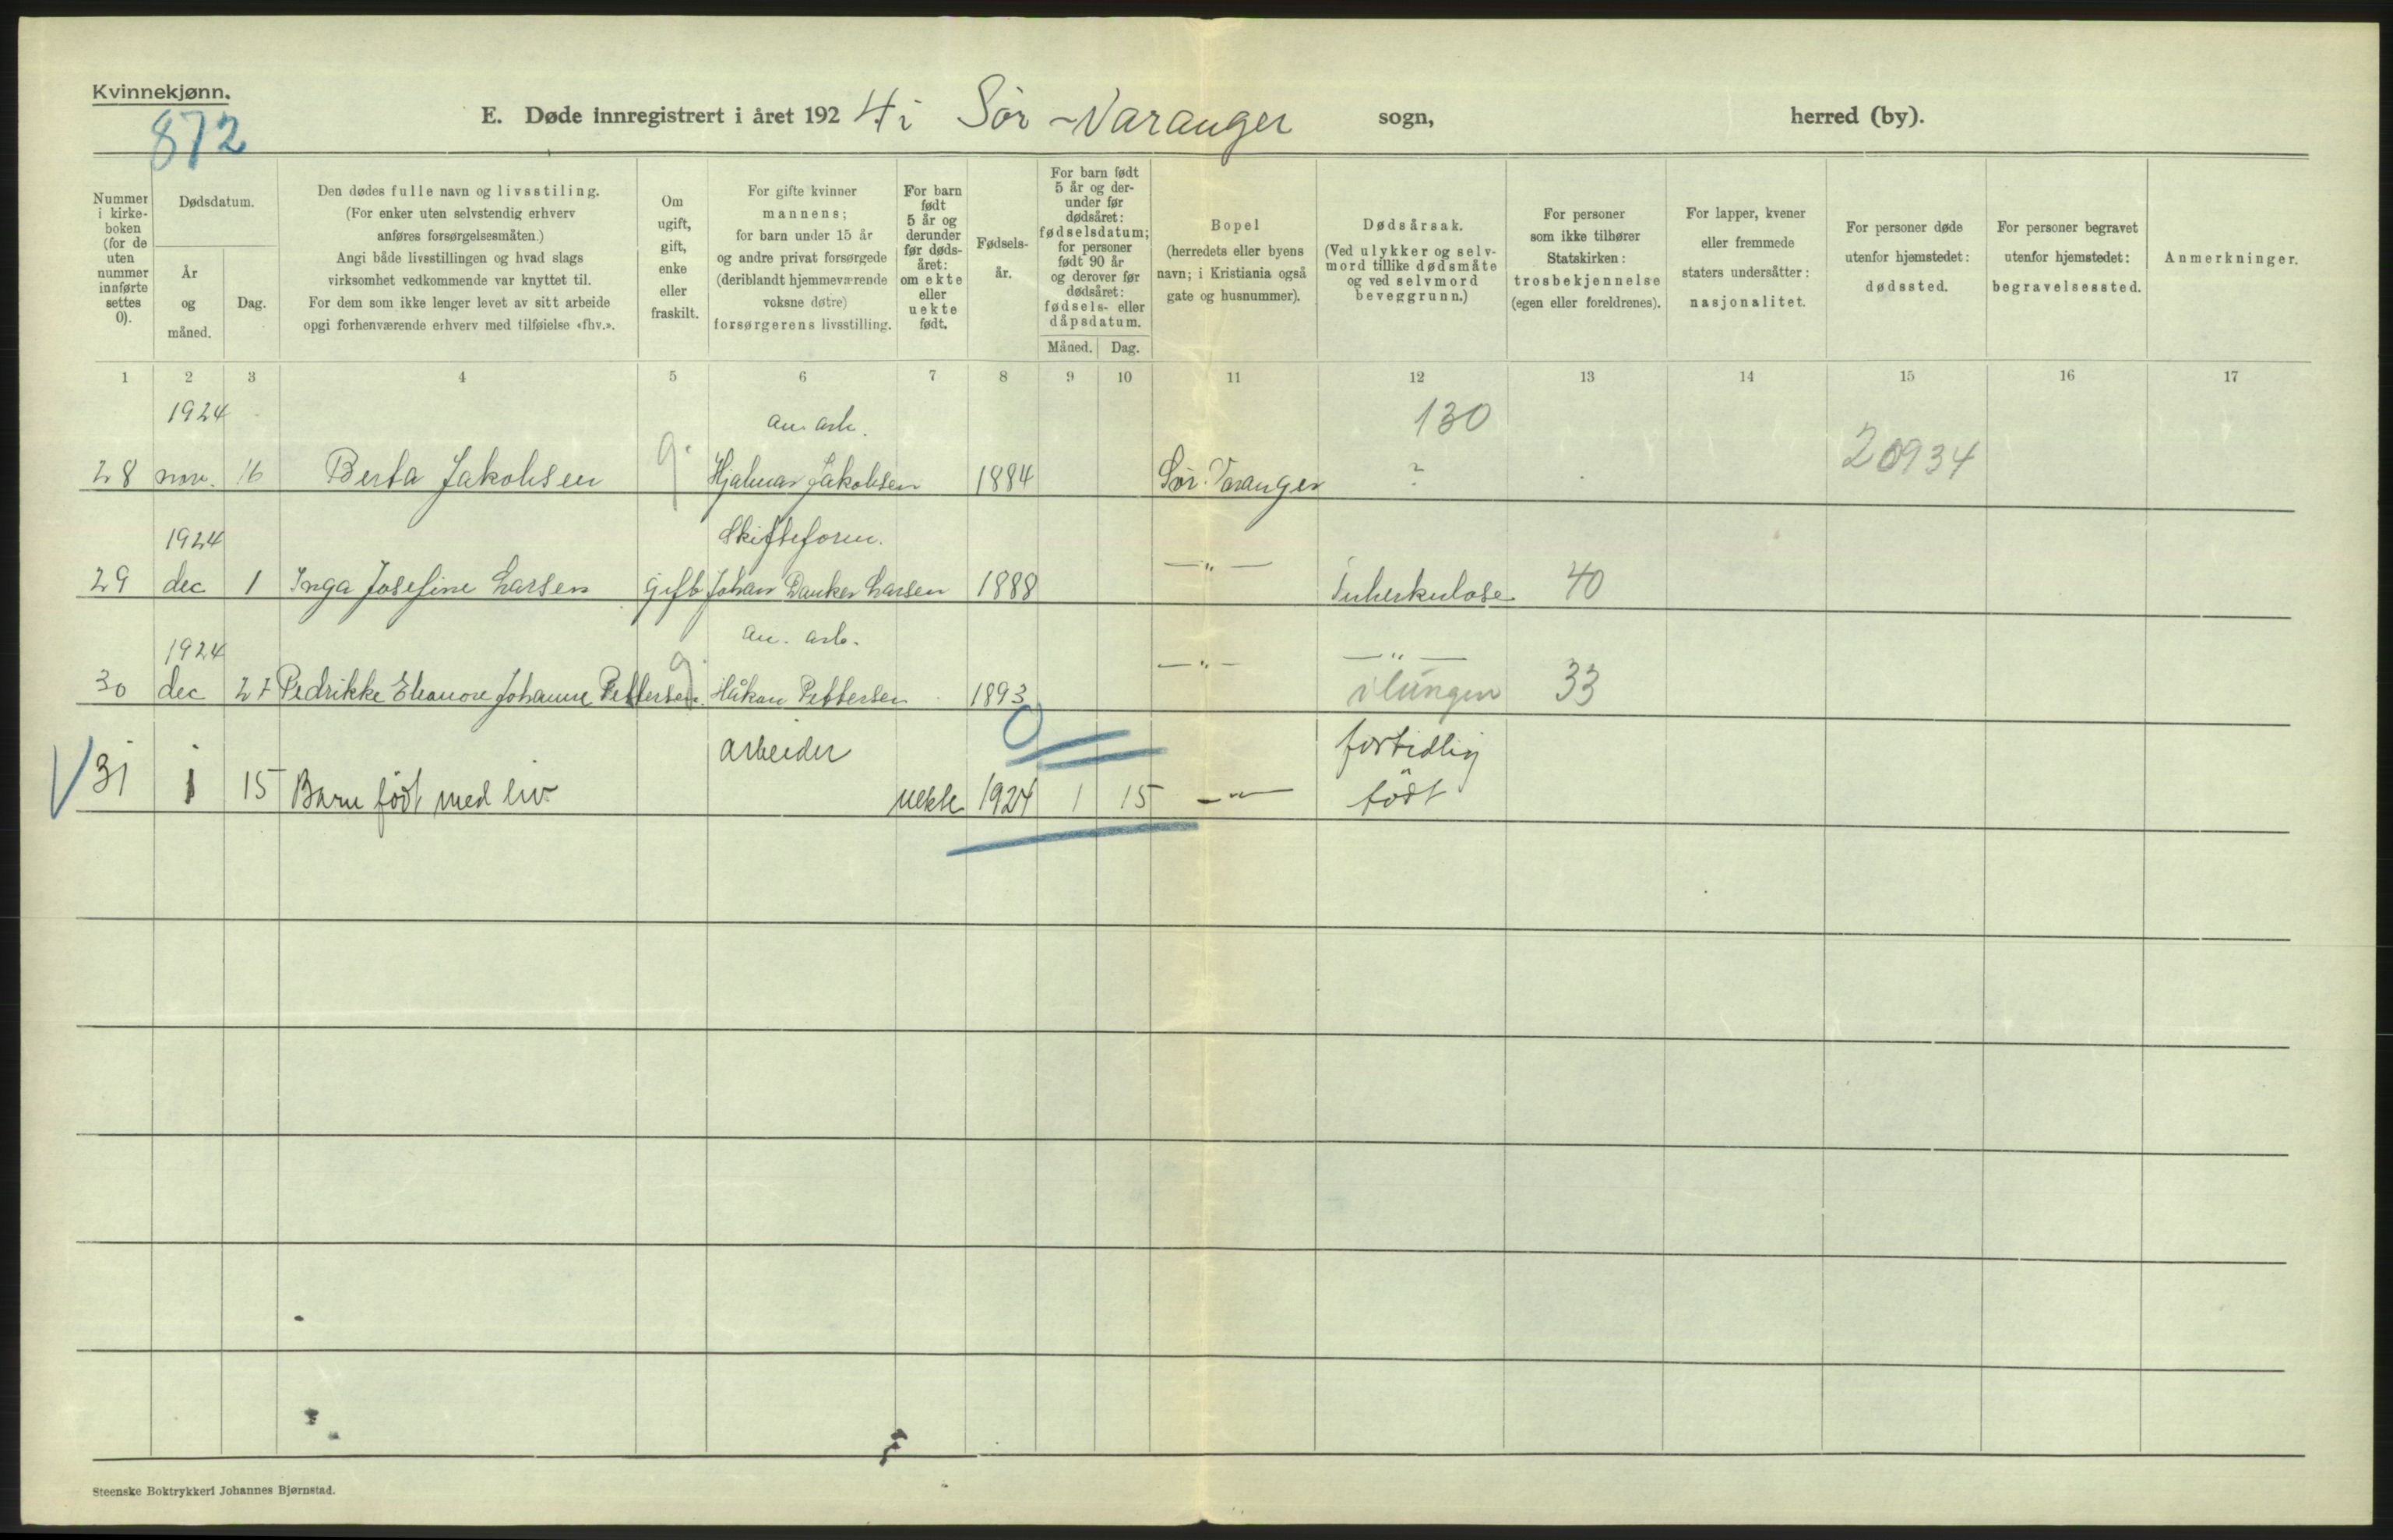 Kvinnekjønn.
872
E. Døde innregistrert i året 1924 i Sör-Varanger sogn, herred (by).
Nummer i kirke-boken (for de uten nummer innførte settes 0).
Dødsdatum.
År og måned.
Dag.
Den dødes fulle navn og livsstiling.
(For enker uten selvstendig erhverv
anføres forsørgelsesmåten.)
Angi både livsstillingen og hvad slags
virksomhet vedkommende var knyttet til.
For dem som ikke lenger levet av sitt arbeide
opgi forhenværende erhverv med tilføielse «fhv.».
Om ugift, gift, enke eller fraskilt.
For gifte kvinner
mannens;
for barn under 15 år
og andre privat forsørgede
(deriblandt hjemmeværende
voksne døtre)
forsørgerens livsstilling.
For barn født 5 år og derunder før døds-året: om ekte eller uekte født.
Fødsels-år.
For barn født
5 år og der-
under før
dødsåret:
fødselsdatum;
for personer
født 90 år
og derover før
dødsåret:
fødsels- eller
dåpsdatum.
Måned. Dag.
Bopel
(herredets eller byens
navn; i Kristiania også
gate og husnummer).
Dødsårsak.
(Ved ulykker og selv-
mord tillike dødsmåte
og ved selvmord
beveggrunn.)
For personer
som ikke tilhører
Statskirken:
trosbekjennelse
(egen eller foreldrenes).
For lapper, kvener
eller fremmede
staters undersåtter:
nasjonalitet.
For personer døde
utenfor hjemstedet:
dødssted.
For personer begravet
utenfor hjemstedet:
begravelsessted.
Anmerkninger.
1 2 3 4 5 6 7 8 9 10 11 12 13 14 15 16 17
1924 an. arb. 130
28 nov. 16 Berta Jakobsen g. Hjalmar Jakobsen 1884 Sör-Varanger ? 20934
1924 Skifteform.
29 dec 1 Inga Josefine Larsen gift Johan Danker Larsen 1888 —"— Tuberkulose 40
1924 an. arb.
30 dec 27 Pedrikke Eleanore Johanne Pettersen g. Håkon Pettersen 1893 —"— —"—
i lungen 33
0
arbeider fortidlig
31 1 15 Barn födt med liv uekte 1924 1 15 —"— födt
Steenske Boktrykkeri Johannes Bjørnstad.